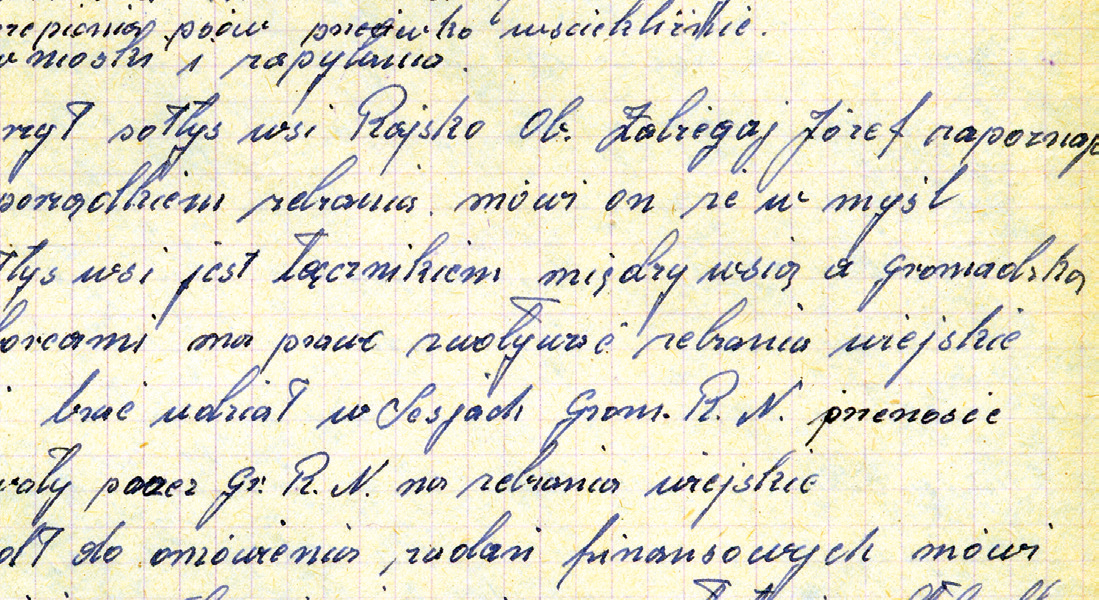 repienia psów przeciwko wściekliźnie.
wnioski i zapytania.
rzył sołtys wsi Rajsko Ob. Zabiegaj Józef zapoznaje
porządkiem zebrania. mówi on że w myśl
łtys wsi jest łącznikiem między wsią a gromadzką
borcami ma prawo zwoływać zebrania wiejskie
brać udział w Sesjach Grom. R. N. przenosić
wały przez Gr. R. N. na zebrania wiejskie
dł do omówienia zadań finansowych mówi